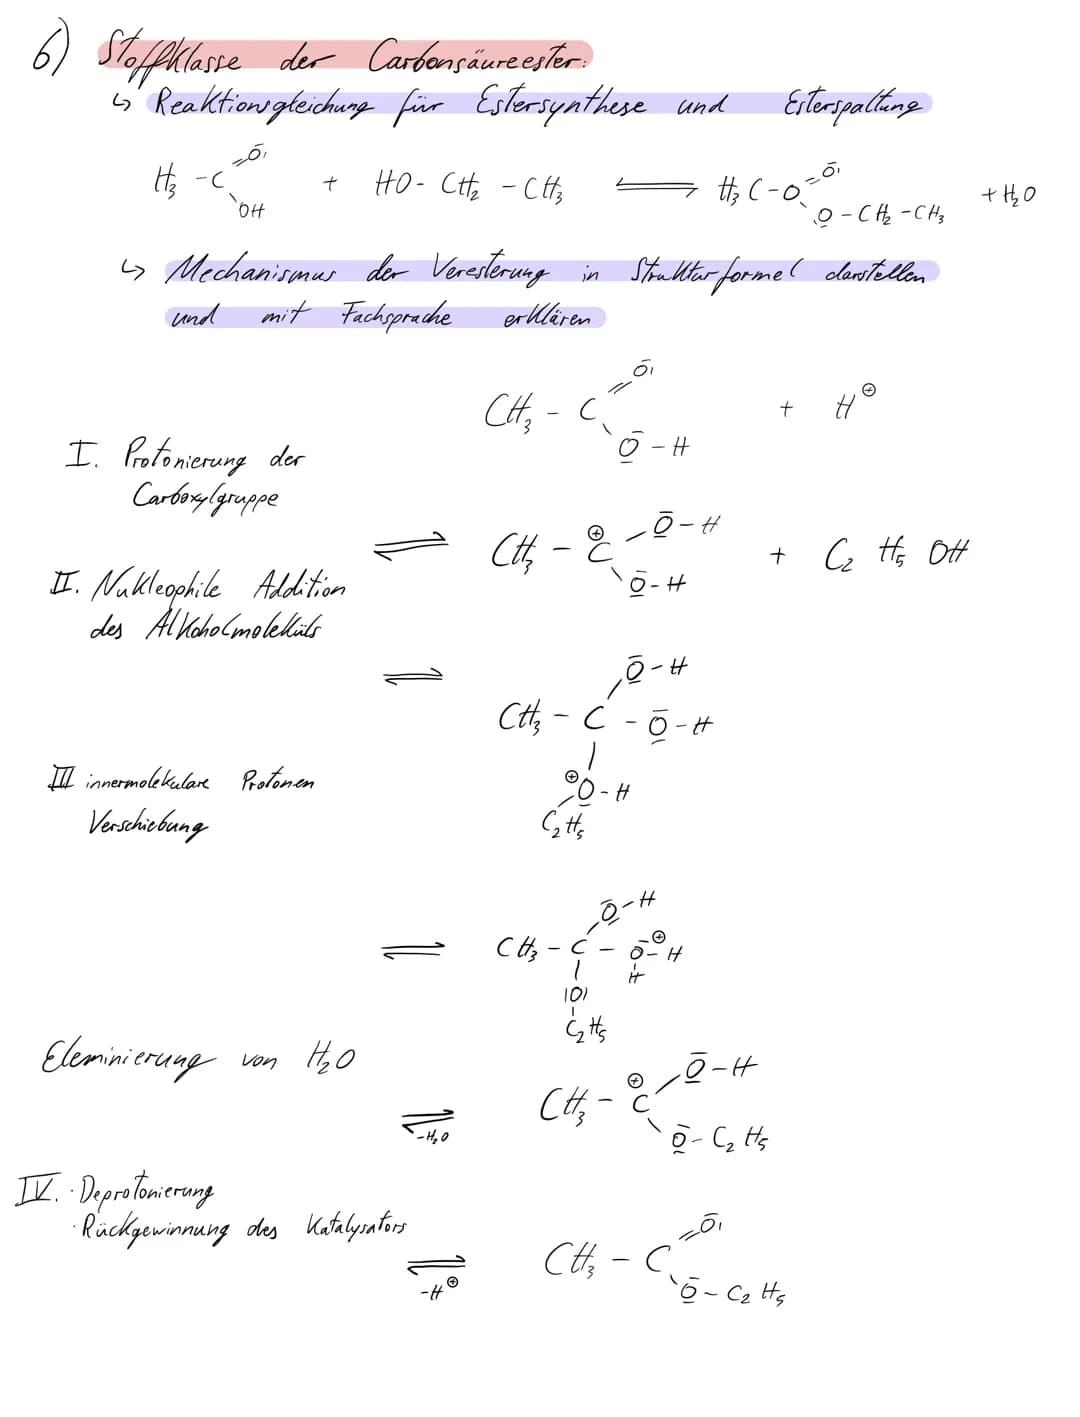 6) Stoffklasse der Carbonsäureester:
↳ Reaktionsgleichung für Estersynthese und Esterspaltung
H₃ -C =O̅| OH + HO - CH₂ - CH₃ ⇌ H₃C-O =O̅| O̅ - CH₂ - CH₃ + H₂O
↳ Mechanismus der Veresterung in Strukturformel darstellen
und mit Fachsprache erklären
CH₃ - C =O̅| O̅ - H + H⊕
I. Protonierung der
Carboxylgruppe
⇌ CH₃ - C⊕ - O̅ - H O̅ - H + C₂H₅OH
II. Nukleophile Addition
des Alkoholmoleküls
⇌ CH₃ - C O̅ - H - O̅ - H ⊕O - H C₂H₅
III innermolekulare Protonen
Verschiebung
⇌ CH₃ - C O̅ - H - O̅⊕ - H H |O| C₂H₅
Eleminierung von H₂O
⇌ -H₂O CH₃ - C⊕ O̅ - H O̅ - C₂H₅
IV. · Deprotonierung
· Rückgewinnung des Katalysators
⇌ -H⊕ CH₃ - C =O̅| O̅ - C₂H₅